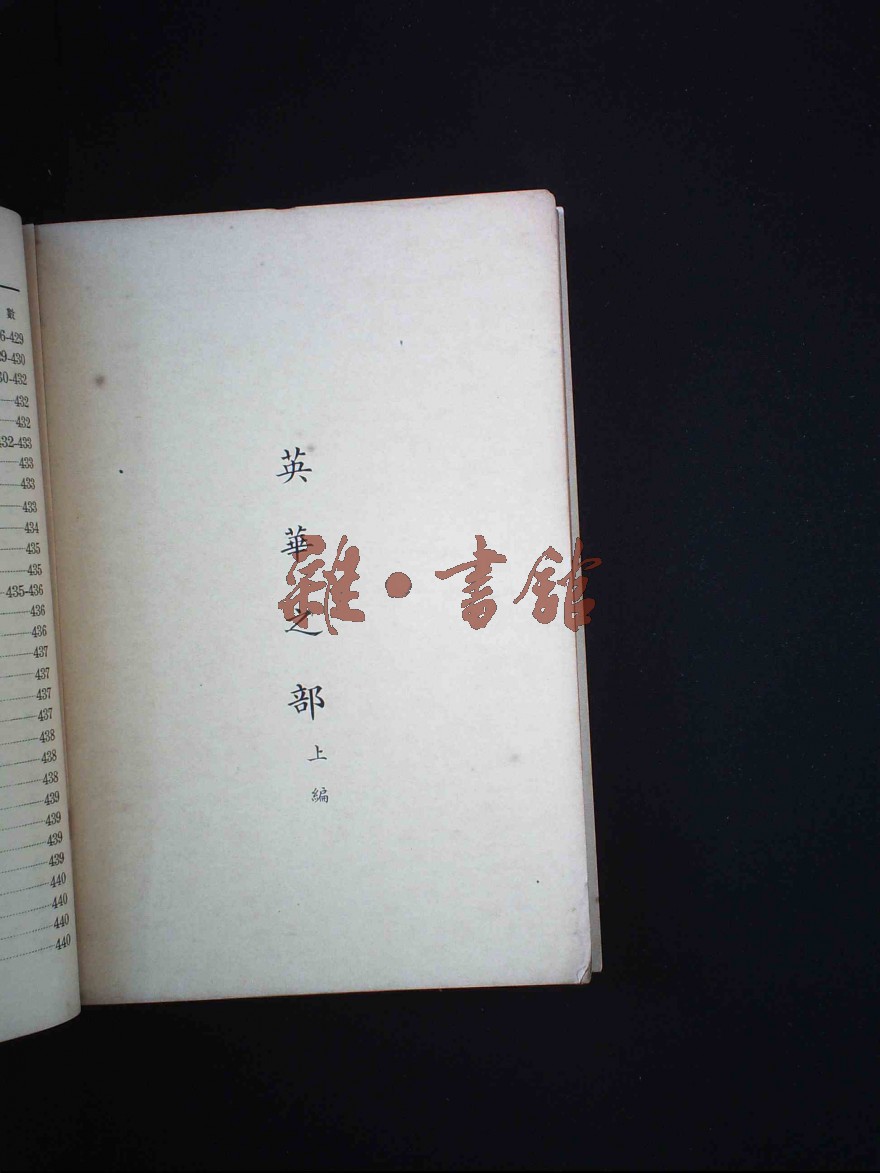 英華之部
上編
雜·書館
數
6-429
29-430
30-432
432
432
432-433
433
433
433
434
435
435
435-436
436
436
437
437
437
437
438
438
438
439
439
439
439
440
440
440
440